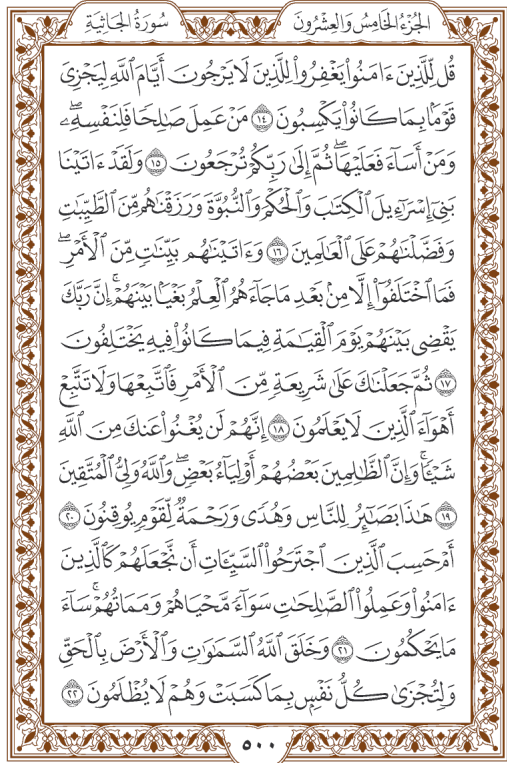 الجُزْءُ الخَامِسُ وَالعِشْرُونَ
سُورَةُ الجَاثِيَةِ
قُل لِّلَّذِينَ ءَامَنُوا۟ يَغْفِرُوا۟ لِلَّذِينَ لَا يَرْجُونَ أَيَّامَ ٱللَّهِ لِيَجْزِىَ
قَوْمًۢا بِمَا كَانُوا۟ يَكْسِبُونَ ١٤ مَنْ عَمِلَ صَٰلِحًا فَلِنَفْسِهِۦ ۖ
وَمَنْ أَسَآءَ فَعَلَيْهَا ۖ ثُمَّ إِلَىٰ رَبِّكُمْ تُرْجَعُونَ ١٥ وَلَقَدْ ءَاتَيْنَا
بَنِىٓ إِسْرَٰٓءِيلَ ٱلْكِتَٰبَ وَٱلْحُكْمَ وَٱلنُّبُوَّةَ وَرَزَقْنَٰهُم مِّنَ ٱلطَّيِّبَٰتِ
وَفَضَّلْنَٰهُمْ عَلَى ٱلْعَٰلَمِينَ ١٦ وَءَاتَيْنَٰهُم بَيِّنَٰتٍ مِّنَ ٱلْأَمْرِ ۖ
فَمَا ٱخْتَلَفُوٓا۟ إِلَّا مِنۢ بَعْدِ مَا جَآءَهُمُ ٱلْعِلْمُ بَغْيًۢا بَيْنَهُمْ ۚ إِنَّ رَبَّكَ
يَقْضِى بَيْنَهُمْ يَوْمَ ٱلْقِيَٰمَةِ فِيمَا كَانُوا۟ فِيهِ يَخْتَلِفُونَ
١٧ ثُمَّ جَعَلْنَٰكَ عَلَىٰ شَرِيعَةٍ مِّنَ ٱلْأَمْرِ فَٱتَّبِعْهَا وَلَا تَتَّبِعْ
أَهْوَآءَ ٱلَّذِينَ لَا يَعْلَمُونَ ١٨ إِنَّهُمْ لَن يُغْنُوا۟ عَنكَ مِنَ ٱللَّهِ
شَيْـًٔا ۚ وَإِنَّ ٱلظَّٰلِمِينَ بَعْضُهُمْ أَوْلِيَآءُ بَعْضٍ ۖ وَٱللَّهُ وَلِىُّ ٱلْمُتَّقِينَ
١٩ هَٰذَا بَصَٰٓئِرُ لِلنَّاسِ وَهُدًى وَرَحْمَةٌ لِّقَوْمٍ يُوقِنُونَ ٢٠
أَمْ حَسِبَ ٱلَّذِينَ ٱجْتَرَحُوا۟ ٱلسَّيِّـَٔاتِ أَن نَّجْعَلَهُمْ كَٱلَّذِينَ
ءَامَنُوا۟ وَعَمِلُوا۟ ٱلصَّٰلِحَٰتِ سَوَآءً مَّحْيَاهُمْ وَمَمَاتُهُمْ ۚ سَآءَ
مَا يَحْكُمُونَ ٢١ وَخَلَقَ ٱللَّهُ ٱلسَّمَٰوَٰتِ وَٱلْأَرْضَ بِٱلْحَقِّ
وَلِتُجْزَىٰ كُلُّ نَفْسٍۭ بِمَا كَسَبَتْ وَهُمْ لَا يُظْلَمُونَ ٢٢
٥٠٠